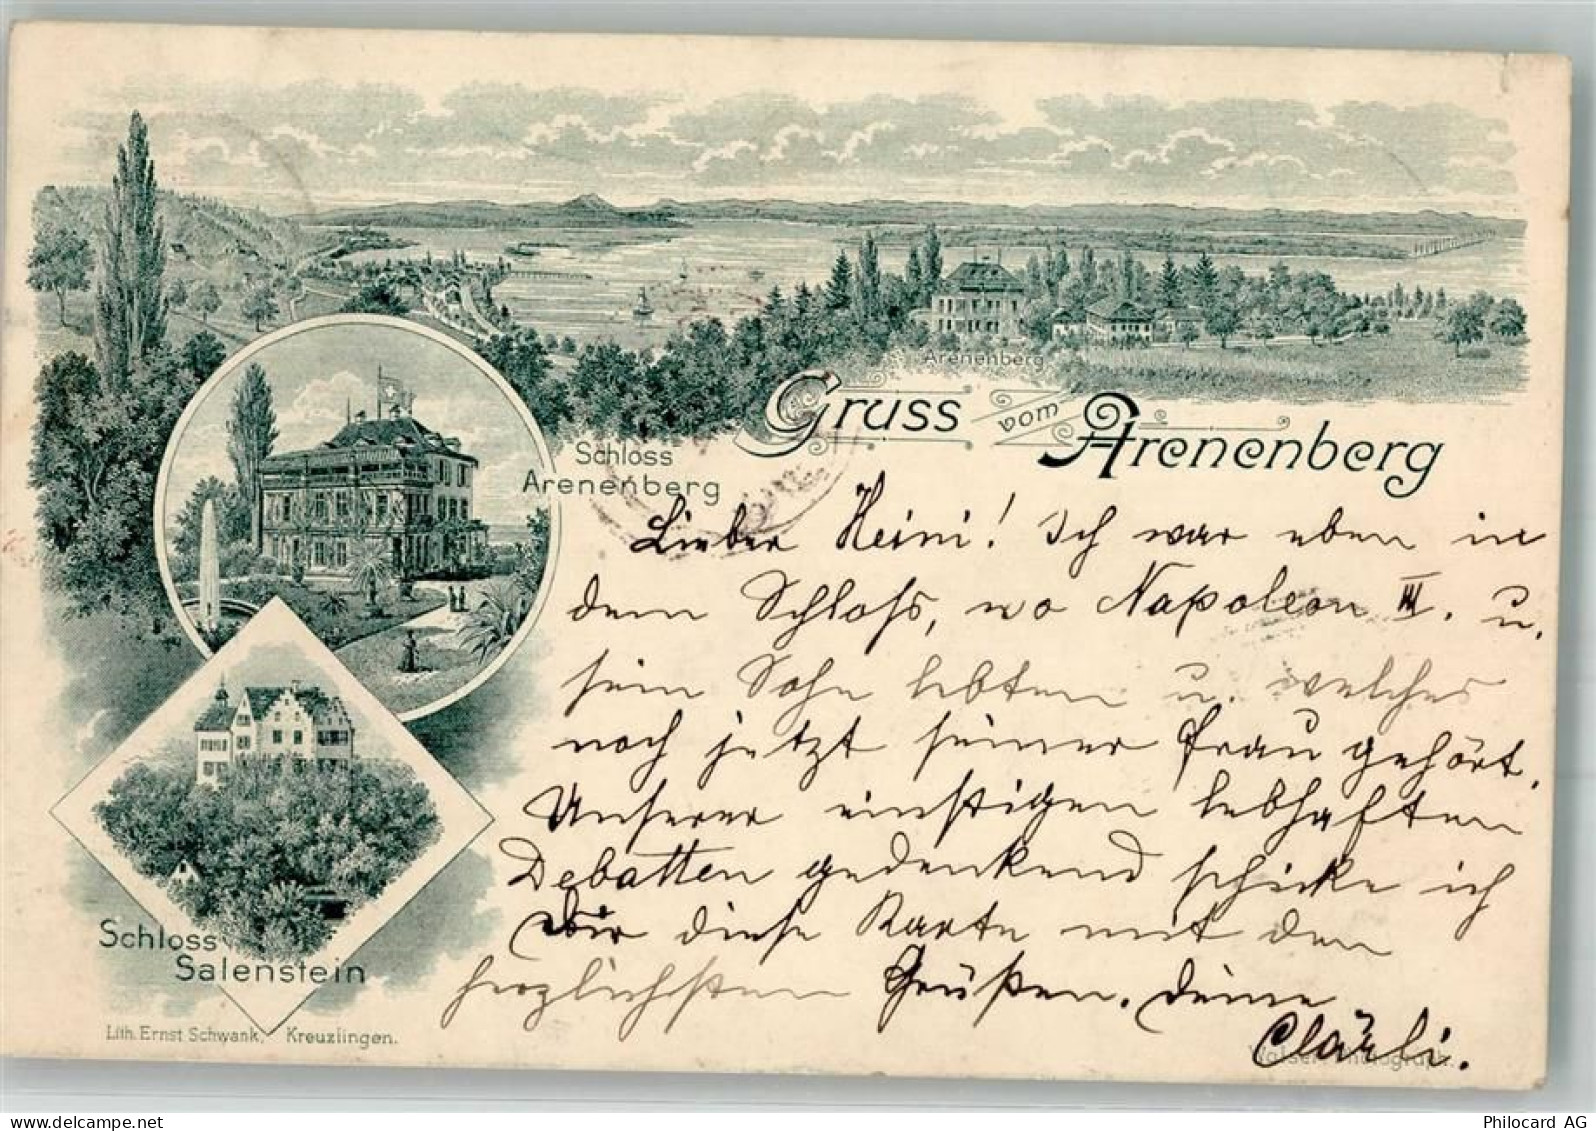 Arenenberg
Gruss vom Arenenberg
Schloss
Arenenberg
Lieber Heini! Ich war eben in
dem Schloß, wo Napoleon III. u.
sein Sohn lebten u. welches
noch jetzt seiner Frau gehört.
Unserer einstigen lebhaften
Debatten gedenkend schicke ich
Dir diese Karte mit den
herzlichsten Grüßen. Deine
Clärli.
Schloss
Salenstein
Lith. Ernst Schwank, Kreuzlingen.
Photograph.
delcampe.net
Philocard AG